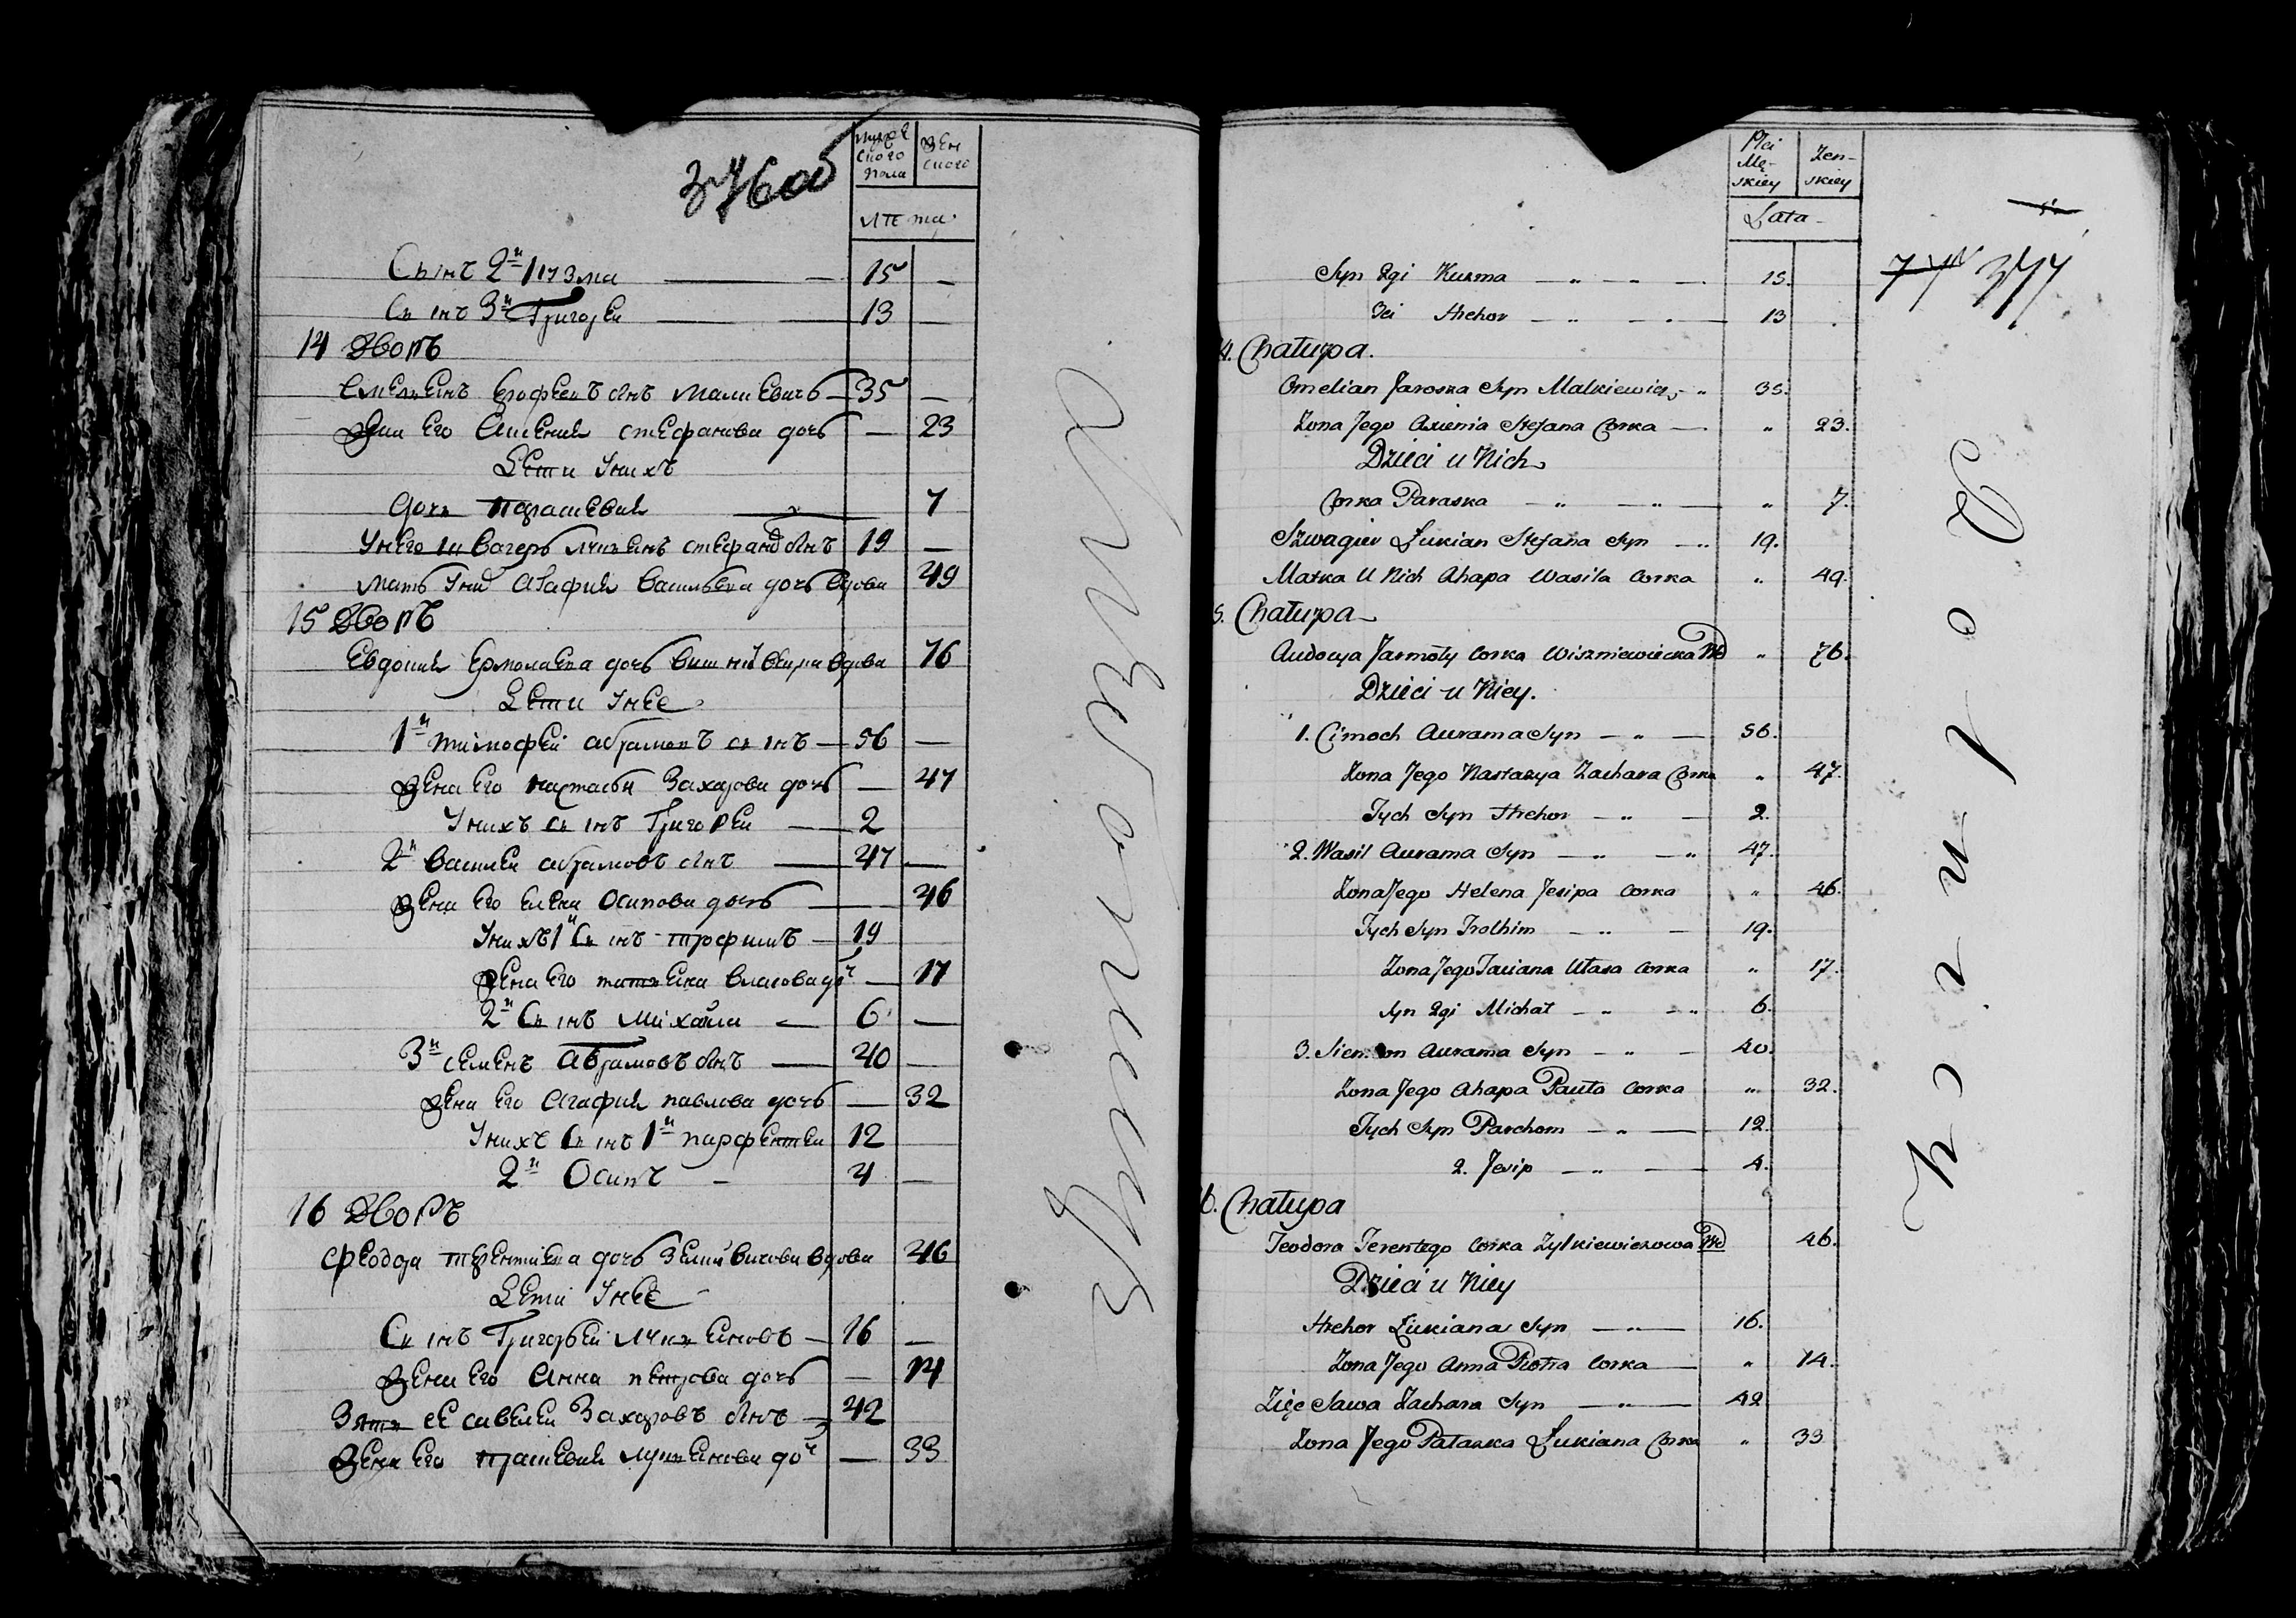 376об
мужескаго пола
женскаго
лѣта
Сынъ 2й Кузма — 15 —
Сынъ 3й Григореи — 13 —
14 Дворъ
Емельянъ Ерофеевъ сынъ Малкевичь — 35 —
Жена его Аксенія Стефанова дочь — 23
Дети у нихъ
дочь Парасковия — 7
У него швагеръ Лукьянъ Стефановъ сынъ 19 —
мать у них Агафия Васильева дочь вдова 49
15 Дворъ
Евдокия Ермолаева дочь Вишневецка вдова 76
Дети у нее
1й Тимофей Абрамовъ сынъ — 56 —
жена его Настасья Захарова дочь — 47
У нихъ сынъ Григореи — 2
2й Василеи Абрамовъ сынъ — 47 —
жена его Елена Осипова дочь — 46
У нихъ 1й сынъ Трофимъ — 19
жена его Татьяна Власова доч — 17
2й Сынъ Михайла — 6 —
3й Семенъ Абрамовъ сынъ — 40 —
жена его Агафия Павлова дочь — 32
У нихъ сынъ 1й Парфентеи 12
2й Осипъ — 4 —
16 Дворъ
Феодора Терентиева дочь Зелкевичова вдова 46
Дети у нее
Сынъ Григорьеи Лукьяновъ — 16 —
жена его Анна Петрова дочь — 14
Зять ее Савелеи Захаровъ сынъ — 42
жена его Прасковия Лукьянова доч — 33
Płci Mę-skiey
Żen-skiey
Lata
377
Syn 2gi Kuzma — „ — „ — 15.
3ci Hrehor — „ — „ — 13
4. Chałupa.
Omelian Jaroszka Syn Malkiewicz „ 35.
Zona Jego Axienia Stefana Corka — „ 23.
Dzieci u Nich
Corka Paraska — „ — „ — „ 7.
Szwagier Łukian Stefana Syn — „ 19.
Matka U Nich Ahapa Wasila Corka „ 49.
5. Chałupa
Audocya Jarmoły Corka Wiszniewiecka Wd „ 76.
Dzieci u Niey.
1. Cimoch Aurama Syn — „ — 56.
Zona Jego Nastazya Zachara Corka „ 47.
Tych Syn Hrehor — „ — 2.
2. Wasil Aurama Syn — „ — „ 47.
Zona Jego Helena Jesipa Corka „ 46.
Tych Syn Trolhim — „ — 19.
Zona Jego Taciana Ułasa Corka „ 17.
Syn 2gi Michał — „ — „ 6.
3. Siemion Aurama Syn — „ — 40.
Zona Jego Ahapa Pauła Corka „ 32.
Tych Syn Parchom — „ — 12.
2. Jesip — „ — 4.
6. Chałupa
Teodora Terentego Corka Zylkiewiczowa Wd 46.
Dzieci u Niey
Hrehor Łukiana Syn — „ — 16.
Zona Jego Anna Piotra Corka — „ 14.
Zięć Sawa Zachara Syn — „ — 42
Zona Jego Pałaszka Łukiana Corka „ 33